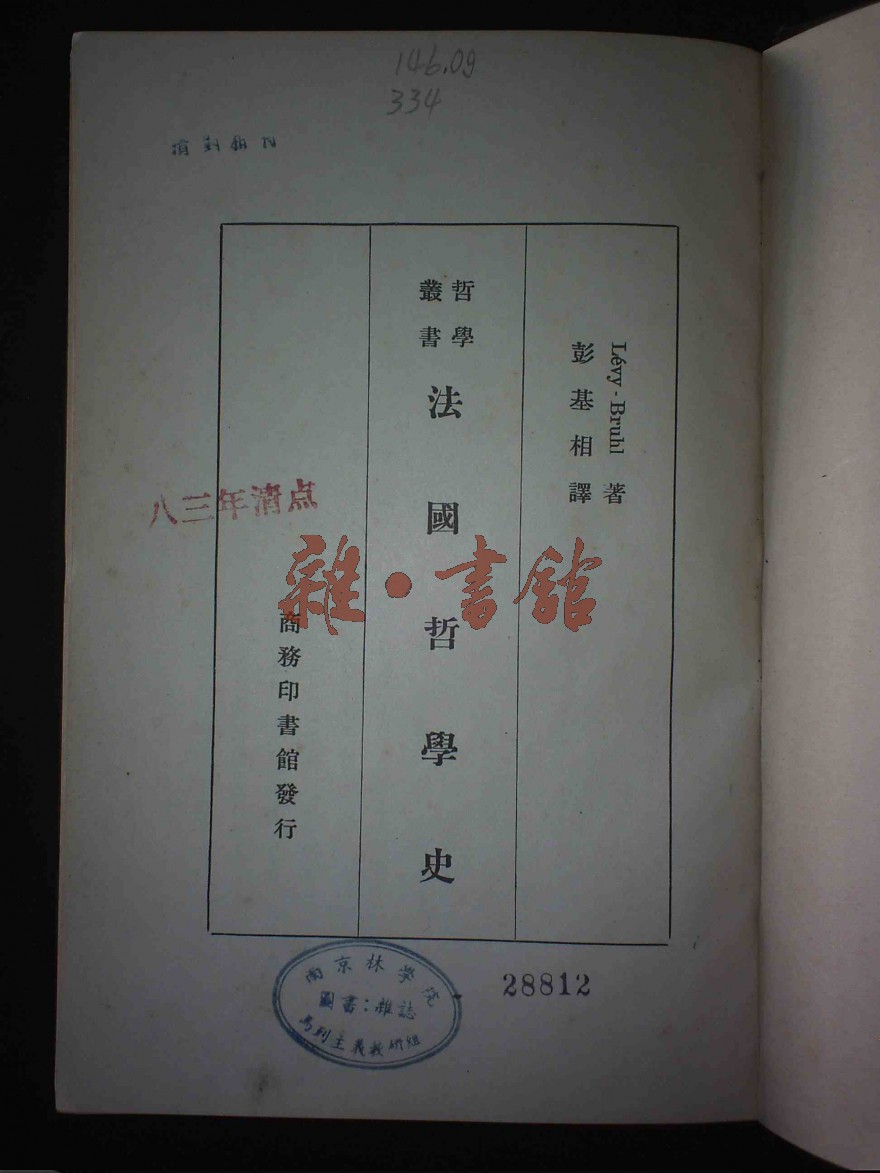 146.09
334
Lévy-Bruhl 著
彭基相譯
哲學
叢書
法國哲學史
商務印書館發行
八三年清点
雜·書館
南京林學院
圖書:雜誌
馬列主義教研組
28812